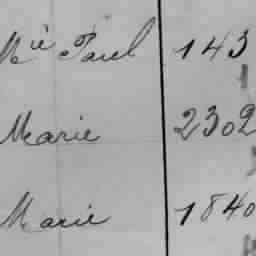 Mie Paul 143
Marie 2302
Marie 1840